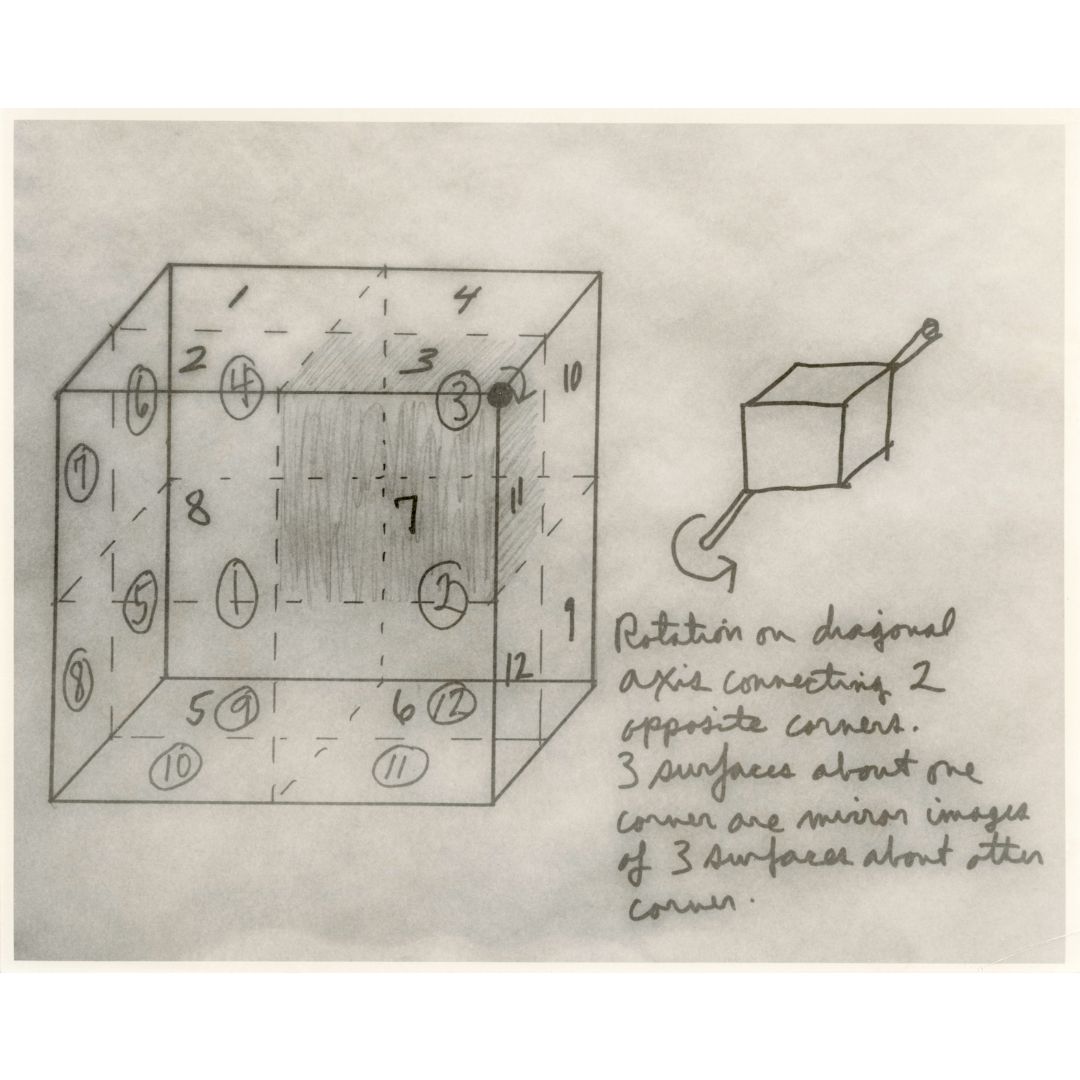 1 4
2 ④ 3 ③ 10
⑥
⑦
8 7 11
⑤ ① ② 9
⑧ 12
5 ⑨ 6 ⑫
⑩ ⑪
Rotation on diagonal
axis connecting 2
opposite corners.
3 surfaces about one
corner are mirror images
of 3 surfaces about other
corner.